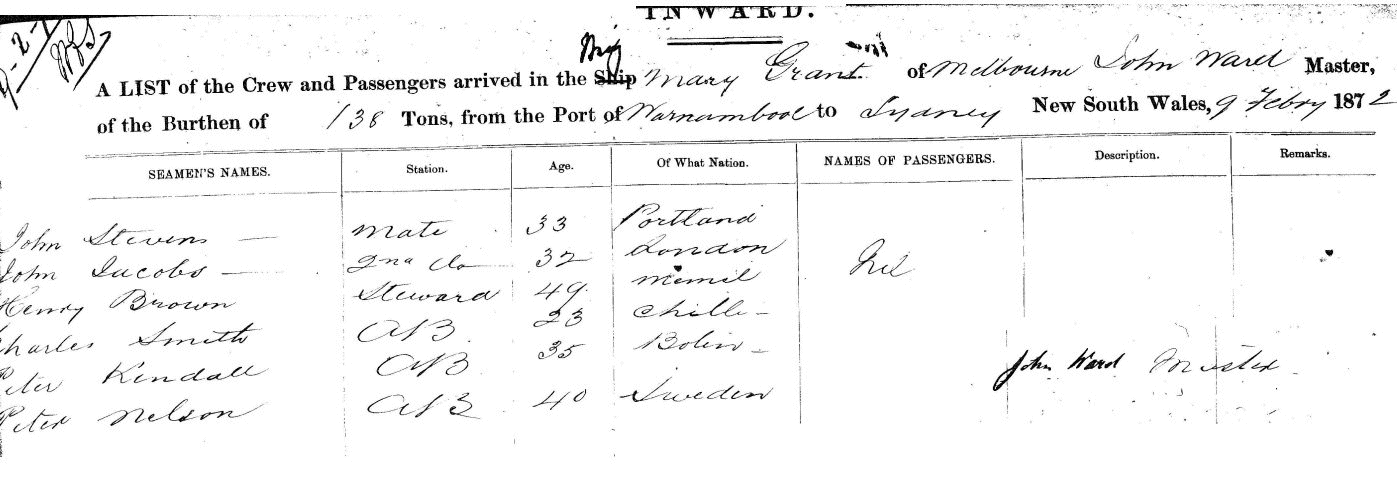 INWARD.
9-2-7
Brig
A LIST of the Crew and Passengers arrived in the Ship Mary Grant of Melbourne John Ward Master,
of the Burthen of 138 Tons, from the Port of Warnambool to Sydney New South Wales, 9 Febry 1872
SEAMEN'S NAMES. Station. Age. Of What Nation. NAMES OF PASSENGERS. Description. Remarks.
John Stevens — Mate 33 Portland
John Jacobs — 2nd do 32 London Nil
Henry Brown Steward 49 Memil
Charles Smith AB 23 Chilli —
Peter Kendall AB 35 Bolin —
John Ward Master
Peter Nelson AB 40 Sweden